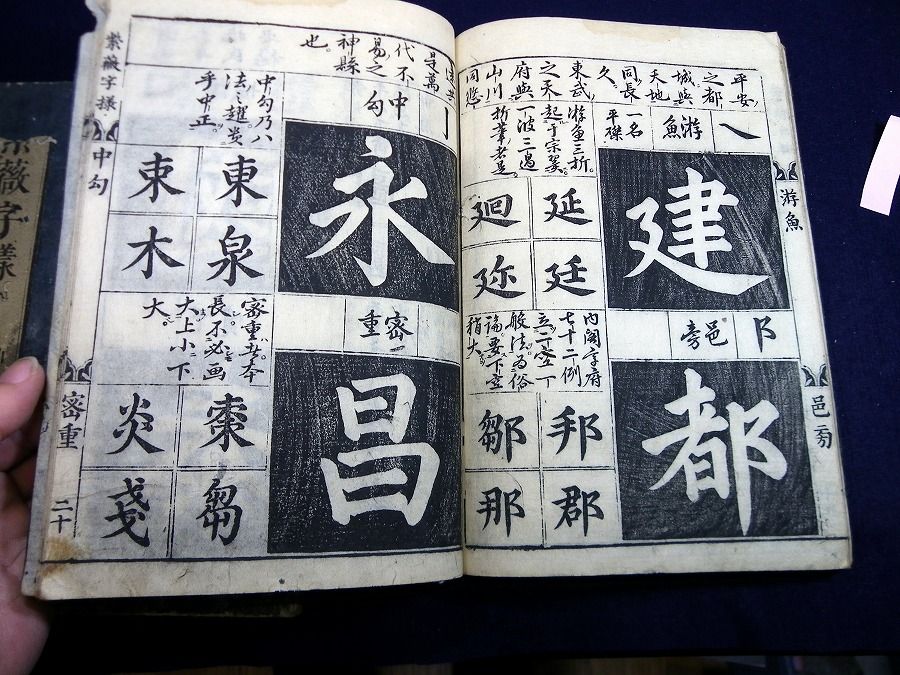 游魚
邑旁
平安
之都
城與
天地
同長
久。
東武
之天
府與
山川
同悠
乀
游魚
一名
平磔
建
游魚三折。
一波三過
折筆者是
延
廷
廻
迩
阝
邑旁
都
内閣字府
七十二例
指大。
邦
郡
鄒
那
是萬
代不
易之
神縣
也。
亅
中勾
永
中勾乃八
法之趯。貴
乎中正。
東
泉
束
木
密重
昌
密重者本
長不必画
大上小下
大。
棗
芻
炎
戔
紫薇字様
中勾
密重
二十
薇字樣